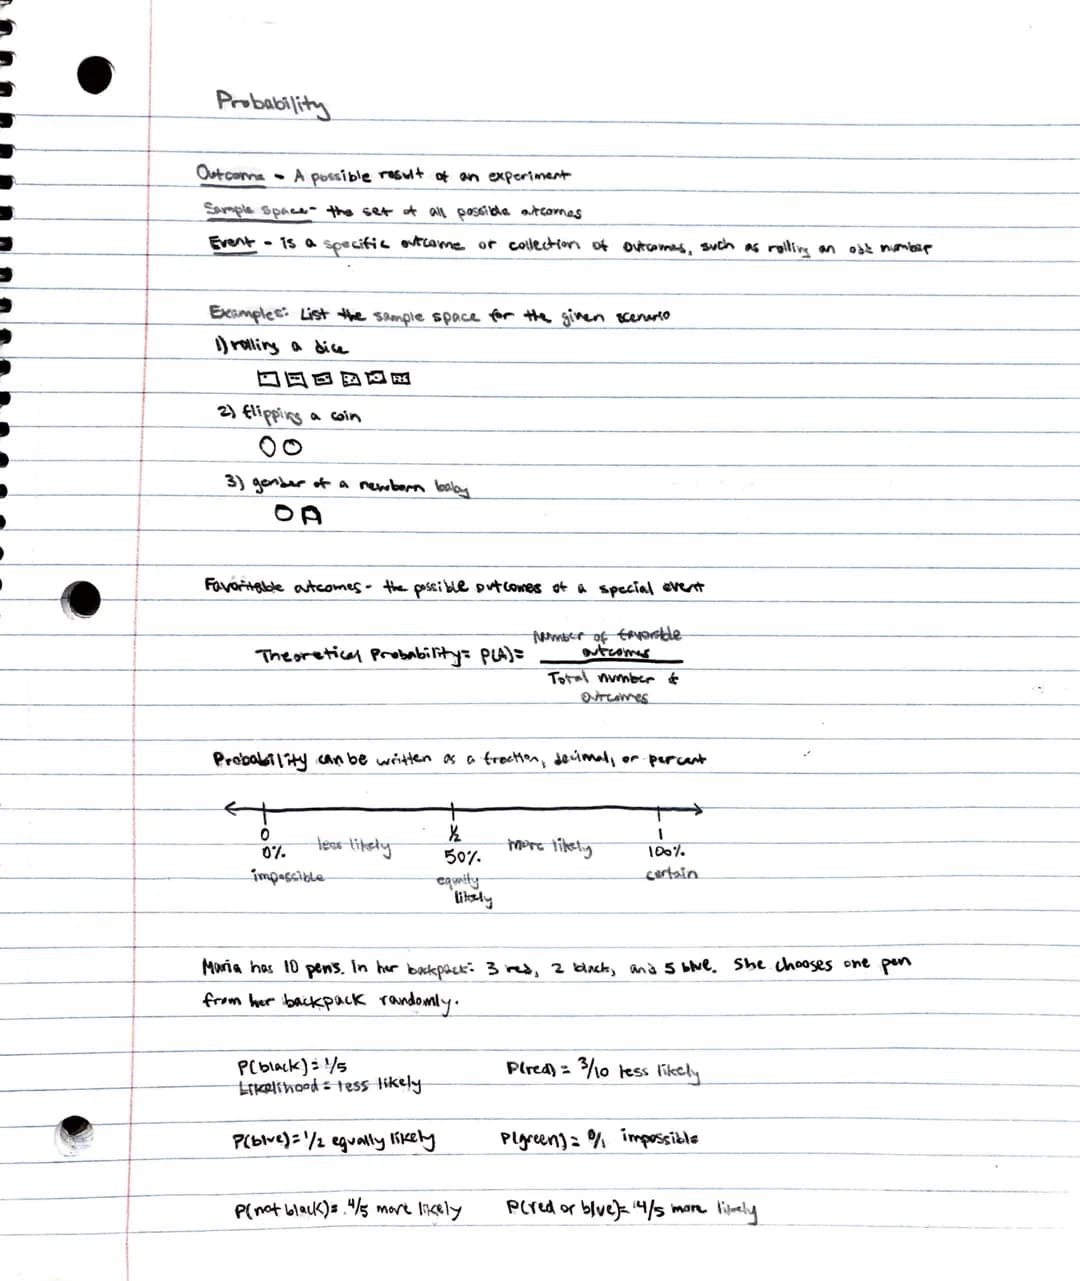 Probability
Outcome - A possible result of an experiment
Sample space - the set of all possible otcomes
Event - is a specific outcome or collection of outcomes, such as rolling an odd number
Examples: List the sample space for the given scenario
1) rolling a dice
2) flipping a coin
3) gender of a newborn baby
Favoritable outcomes - the possible outcomes of a special event
Theoretical Probability = P(A) = Number of favorable
outcomes
Total number of
outcomes
Probability can be written as a fraction, decimal, or percent
0 less likely 1/2 more likely 1
0% 50% 100%
impossible equally certain
likely
Maria has 10 pens. In her backpack: 3 red, 2 black, and 5 blue. She chooses one pen
from her backpack randomly.
P(black) = 1/5 P(red) = 3/10 less likely
Likelihood = less likely
P(blue) = 1/2 equally likely P(green) = 0/1 impossible
P(not black) = 4/5 more likely P(red or blue) = 4/5 more likely